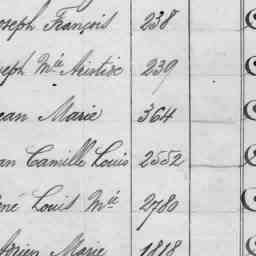 oseph François 238
seph Mie Aristide 239
ean Marie 364
an Camille Louis 2552
ené Louis Mie 2780
drien Marie 1818